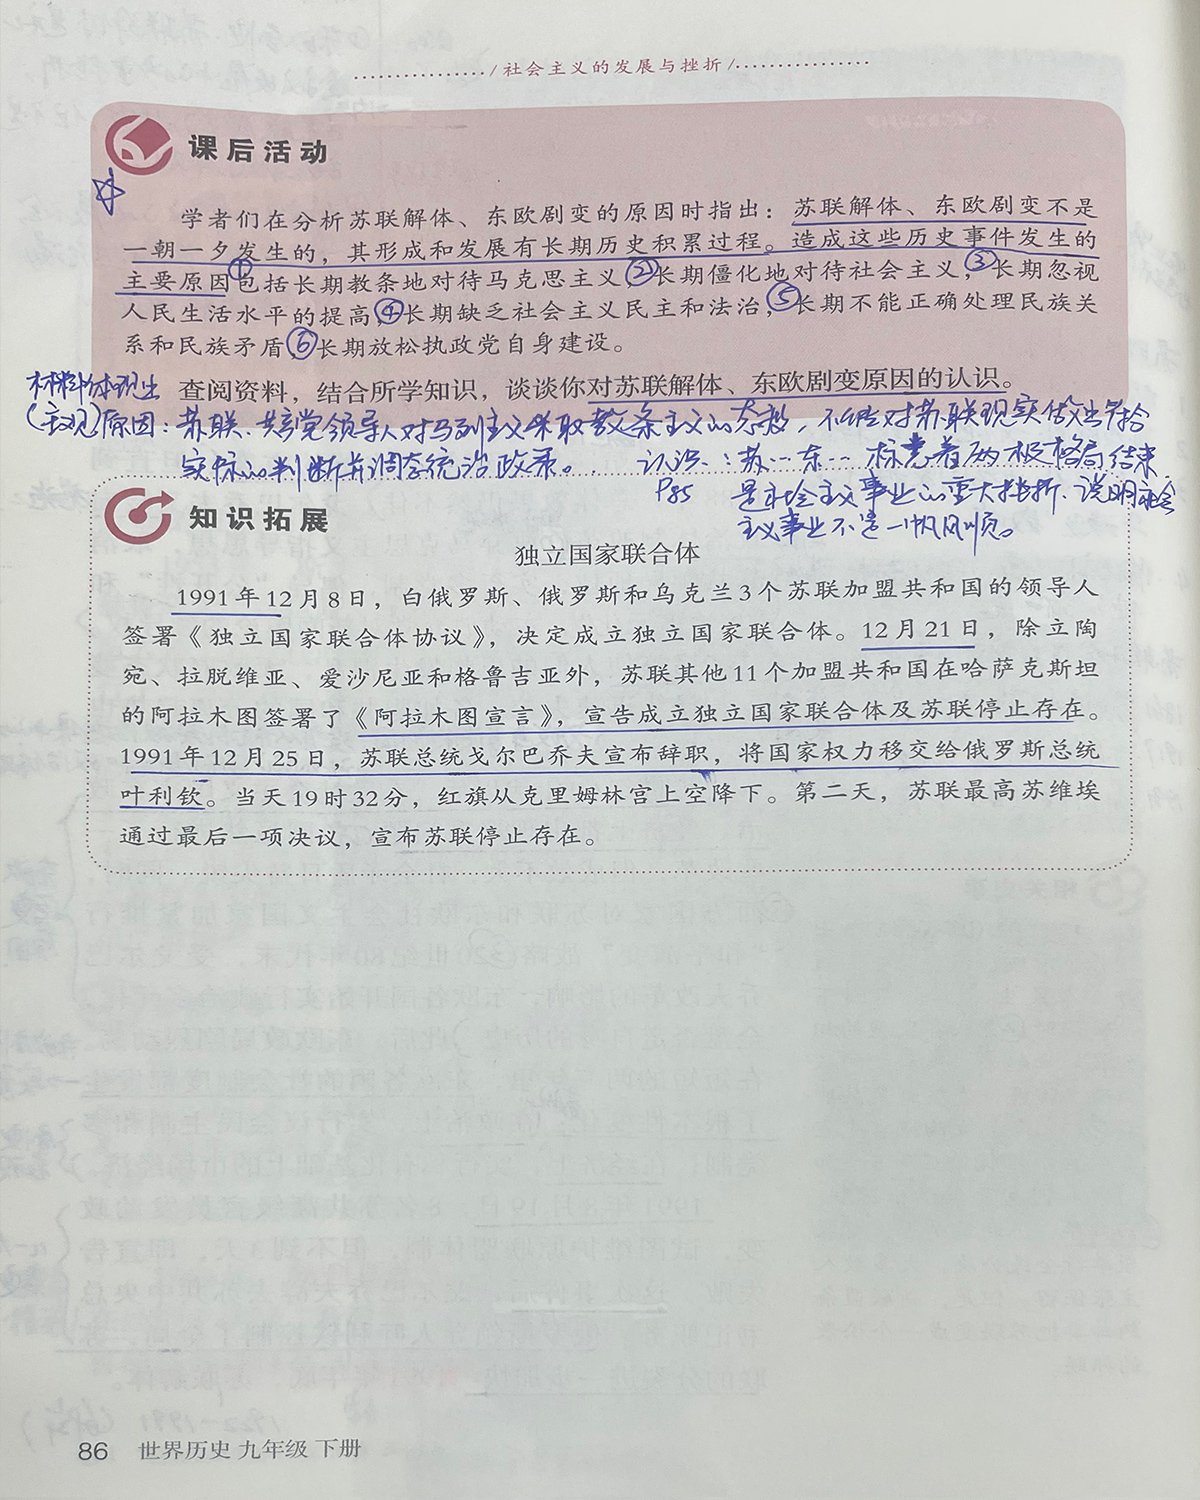 / 社会主义的发展与挫折 /
课后活动
学者们在分析苏联解体、东欧剧变的原因时指出：苏联解体、东欧剧变不是
一朝一夕发生的，其形成和发展有长期历史积累过程。造成这些历史事件发生的
主要原因①包括长期教条地对待马克思主义，②长期僵化地对待社会主义，③长期忽视
人民生活水平的提高，④长期缺乏社会主义民主和法治，⑤长期不能正确处理民族关
系和民族矛盾，⑥长期放松执政党自身建设。
材料体现出
查阅资料，结合所学知识，谈谈你对苏联解体、东欧剧变原因的认识。
(主观)原因：苏联、共产党领导人对马列主义采取教条主义的态度，不能对苏联现实做出符合
实际的判断并调整统治政策。... 认识：苏…东…标志着两极格局结束
P85 是社会主义事业的重大挫折、说明社会
主义事业不是一帆风顺。
知识拓展
独立国家联合体
1991年12月8日，白俄罗斯、俄罗斯和乌克兰3个苏联加盟共和国的领导人
签署《独立国家联合体协议》，决定成立独立国家联合体。12月21日，除立陶
宛、拉脱维亚、爱沙尼亚和格鲁吉亚外，苏联其他11个加盟共和国在哈萨克斯坦
的阿拉木图签署了《阿拉木图宣言》，宣告成立独立国家联合体及苏联停止存在。
1991年12月25日，苏联总统戈尔巴乔夫宣布辞职，将国家权力移交给俄罗斯总统
叶利钦。当天19时32分，红旗从克里姆林宫上空降下。第二天，苏联最高苏维埃
通过最后一项决议，宣布苏联停止存在。
86 世界历史 九年级 下册